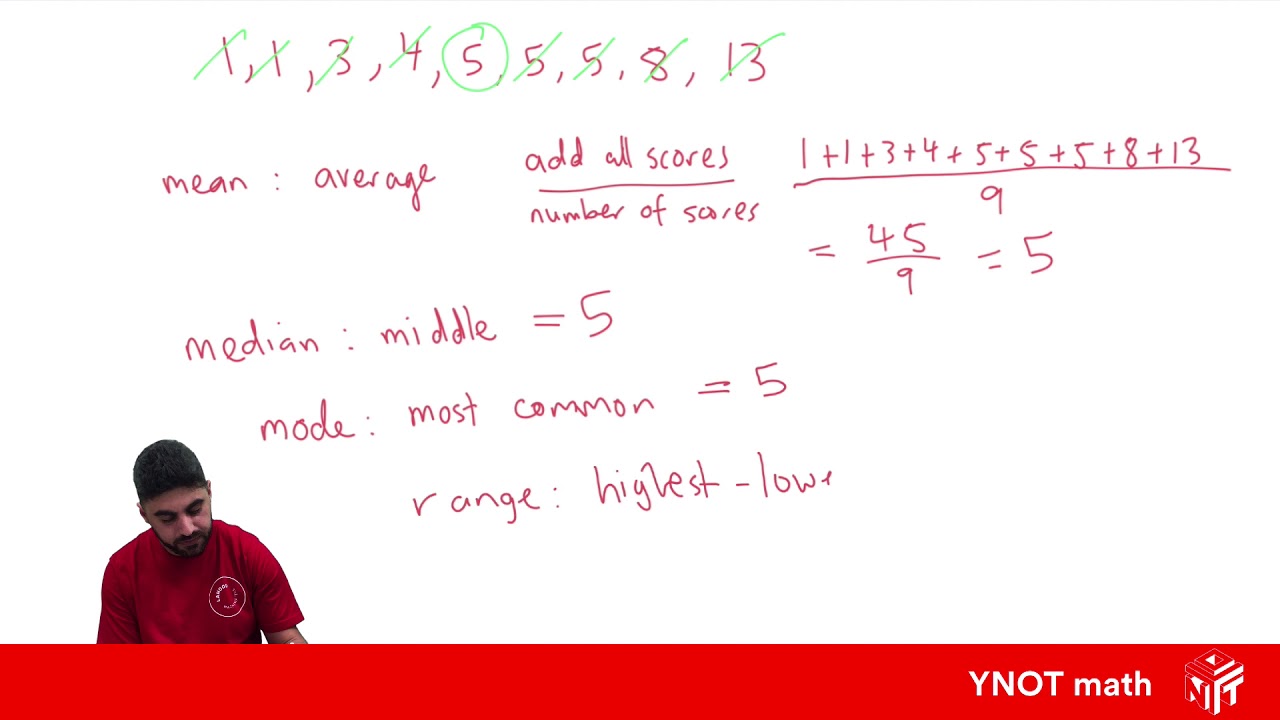 1, 1, 3, 4, 5, 5, 5, 8, 13
mean : average add all scores / number of scores 1+1+3+4+5+5+5+8+13 / 9
= 45/9 = 5
median : middle = 5
mode : most common = 5
range : highest - lowe
YNOT math